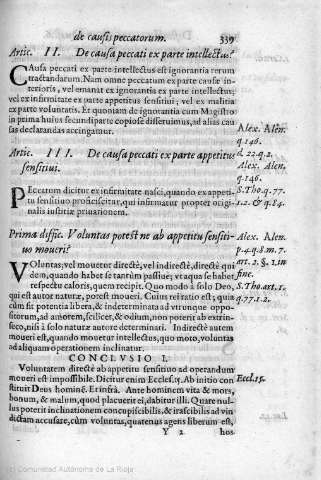 de causis peccatorum. 339
Artic. II. De causa peccati ex parte intellectus?
CAusa peccati ex parte intellectus est ignorantia rerum
tractandarum. Nam omne peccatum ex parte causæ in-
terioris, vel emanat ex ignorantia ex parte intellectus;
vel ex infirmitate ex parte appetitus sensitiui; vel ex malitia
ex parte voluntatis. Et quoniam de ignorantia cum Magistro
in prima huius secundi parte copiose disseruimus, ad alias cau
sas declarandas accingamur.
Alex. Alen.
q.146.
Artic. III. De causa peccati ex parte appetitus
d. 22.q.2.
sensitiui.
Alex. Alen.
q.146.
PEccatum dicitur ex infirmitate nasci, quando ex appeti-
S.Tho.q.77.
tu sensitiuo proficiscitur, qui infirmatur propter origi-
1.2. & q.84.
nalis iustitiæ priuationem.
Prima diffic. Voluntas potest ne ab appetitu sensiti-
Alex. Alen.
uo moueri?
p.4.q.8.m.7.
VOluntas, vel mouetur directè, vel indirectè, directè qui
art.2.§.1.in
dem, quando habet se tantùm passiuè; vt aqua se habet
fine.
respectu caloris, quem recipit. Quo modo à solo Deo,
S.Tho.art.1.
qui est autor naturæ, potest moueri. Cuius rei ratio est; quia
q.77.1.2.
cùm sit potentia libera, & indeterminata ad vtrunque oppo-
sitorum, ad amorem, scilicet, & odium, non poterit ab extrin-
seco, nisi à solo naturæ autore determinari. Indirectè autem
moueri est, quando mouetur intellectus, quo moto, voluntas
ad aliquam operationem inclinatur.
CONCLVSIO I.
Voluntatem directè ab appetitu sensitiuo ad operandum
moueri est impossibile. Dicitur enim Eccles.15. Ab initio con
Eccl.15.
stituit Deus hominē. Et infrà. Ante hominem vita & mors,
bonum, & malum, quod placuerit ei, dabitur illi. Quare nul-
lus poterit inclinationem concupiscibilis, & irascibilis ad vin
dictam accusare, cùm voluntas, quatenus agens liberum est,
Y 2 hos
(c) Comunidad Autónoma de La Rioja